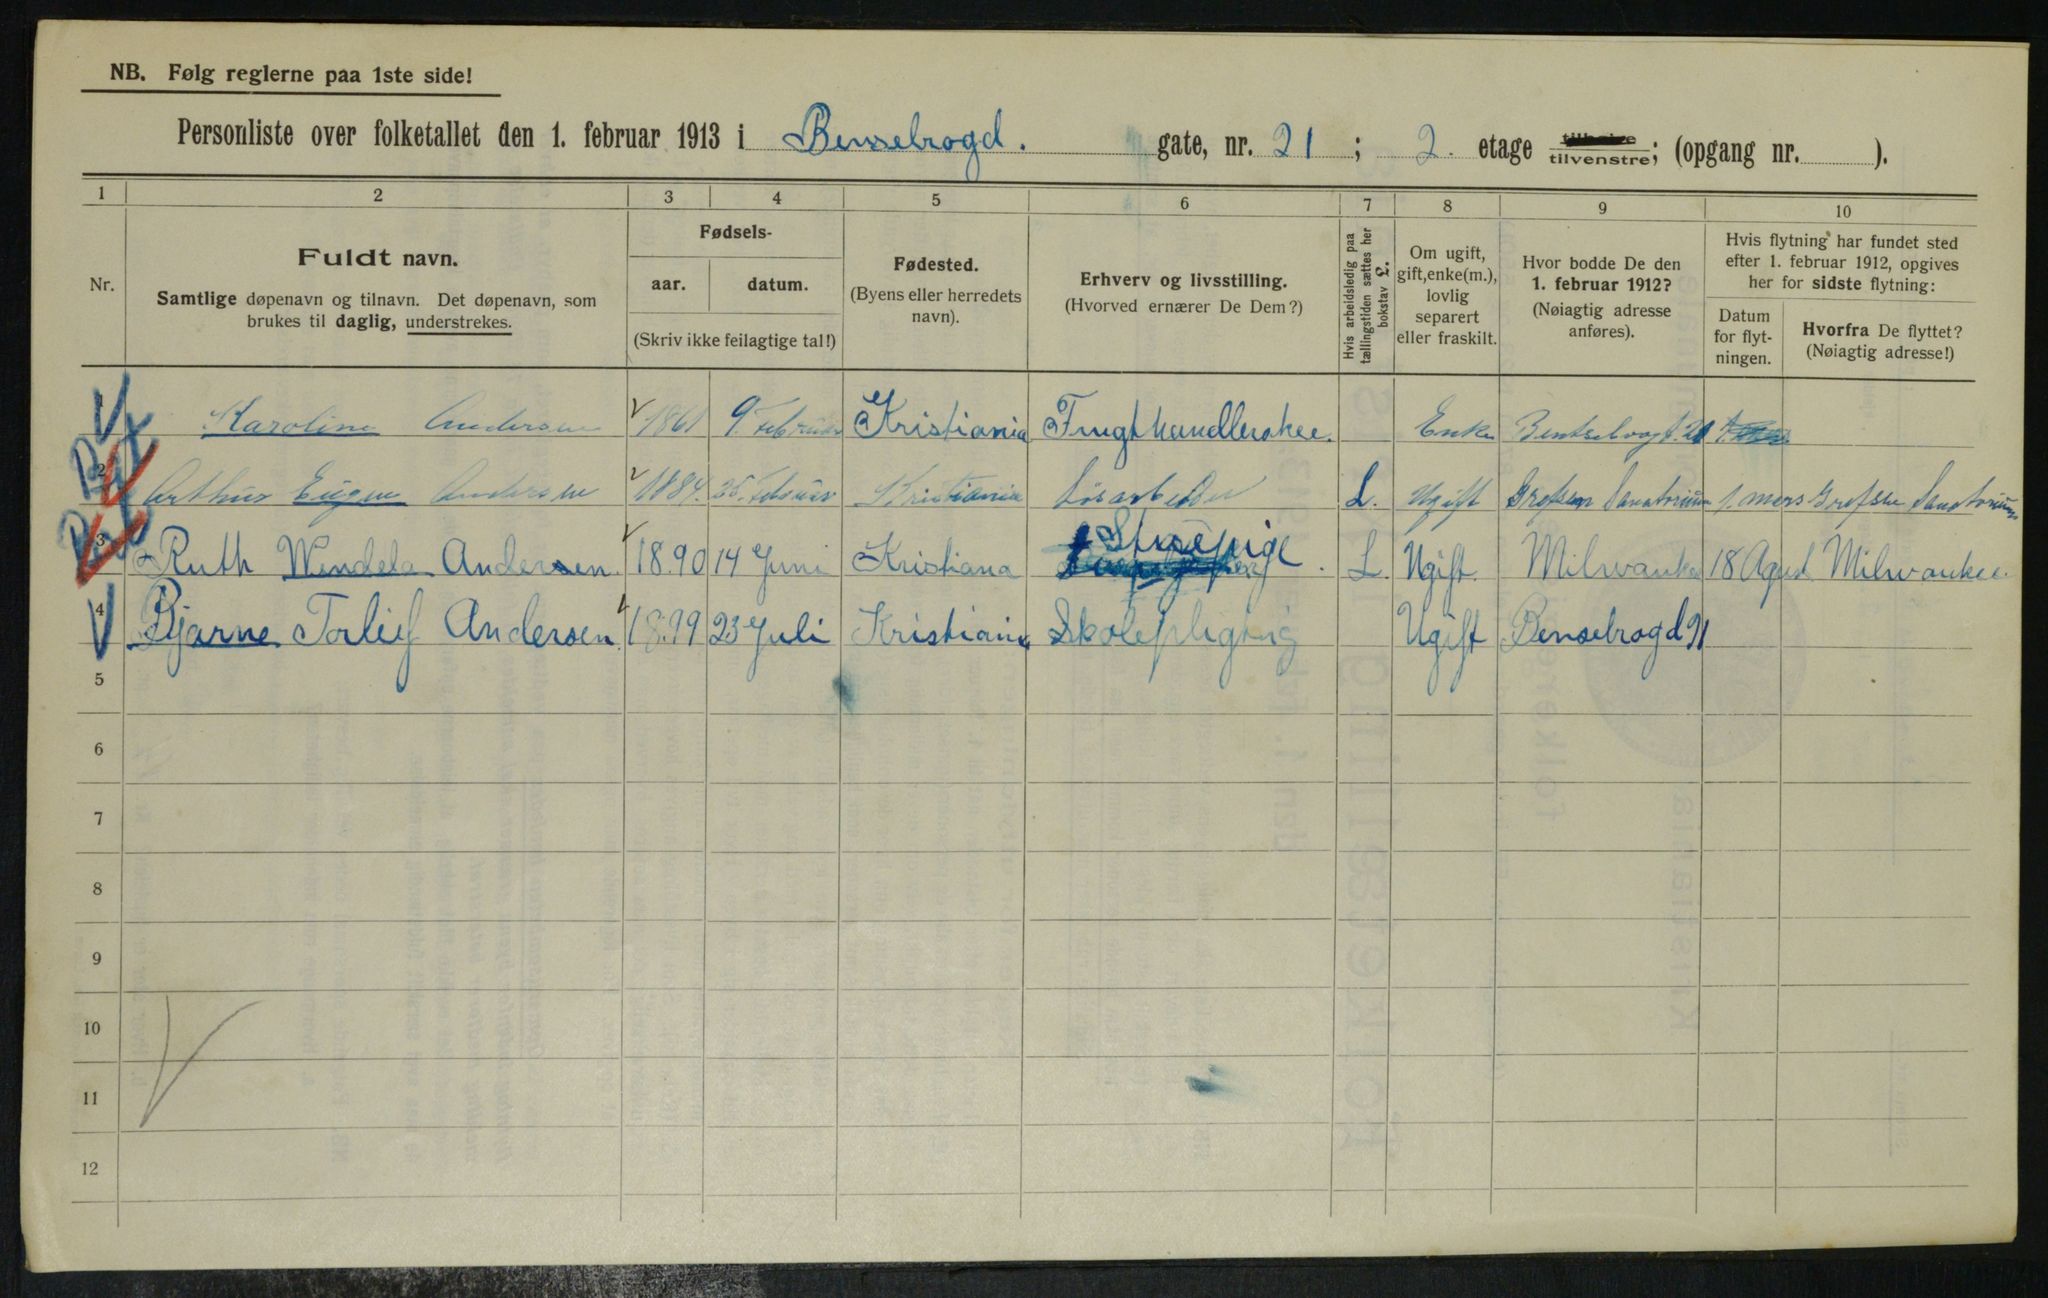 NB. Følg reglerne paa 1ste side!
Personliste over folketallet den 1. februar 1913 i Bensebrogd. gate, nr. 21 ; 2. etage tilhøire tilvenstre; (opgang nr. ).
1 2 3 4 5 6 7 8 9 10
Nr.
Fuldt navn.
Samtlige døpenavn og tilnavn. Det døpenavn, som
brukes til daglig, understrekes.
Fødsels-
aar. datum.
(Skriv ikke feilagtige tal!)
Fødested.
(Byens eller herredets
navn).
Erhverv og livsstilling.
(Hvorved ernærer De Dem?)
Hvis arbeidsledig paa
tællingstiden sættes her
bokstav L.
Om ugift,
gift, enke(m.),
lovlig
separert
eller fraskilt.
Hvor bodde De den
1. februar 1912?
(Nøiagtig adresse
anføres).
Hvis flytning har fundet sted
efter 1. februar 1912, opgives
her for sidste flytning:
Datum
for flyt-
ningen.
Hvorfra De flyttet?
(Nøiagtig adresse!)
1 Karoline Andersen 1861 9. Februar Kristiania Frugthandlerskee. Enke Bentselvogt. 21
2 Arthur Eugen Andersen 1884. 25. Februar Kristiania Løsarbeider L. Ugift Grefsen Sanatorium 1. mars Grefsen Sanatorium
3 Ruth Wendela Andersen 1890 14 Juni Kristiana Stuepige. L. Ugift. Milwaukee 18 Agust Milwaukee.
4 Bjarne Torleif Andersen. 1899 23 Juli Kristiania Skolepligtig Ugift Bensebrogd 21
5
6
7
8
9
10
11
12